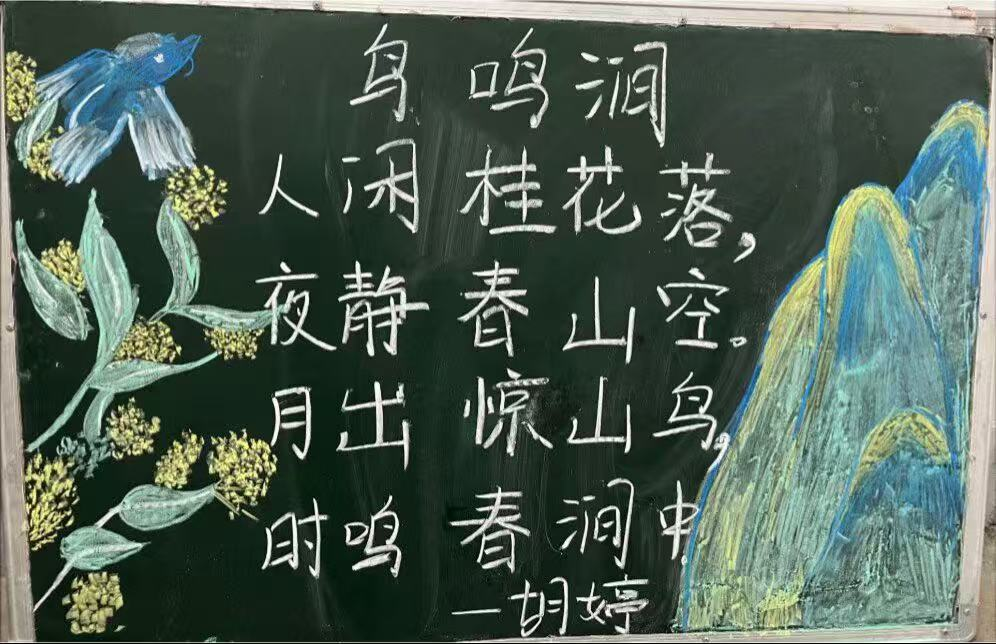 鸟鸣涧
人闲桂花落，
夜静春山空。
月出惊山鸟，
时鸣春涧中
—胡婷